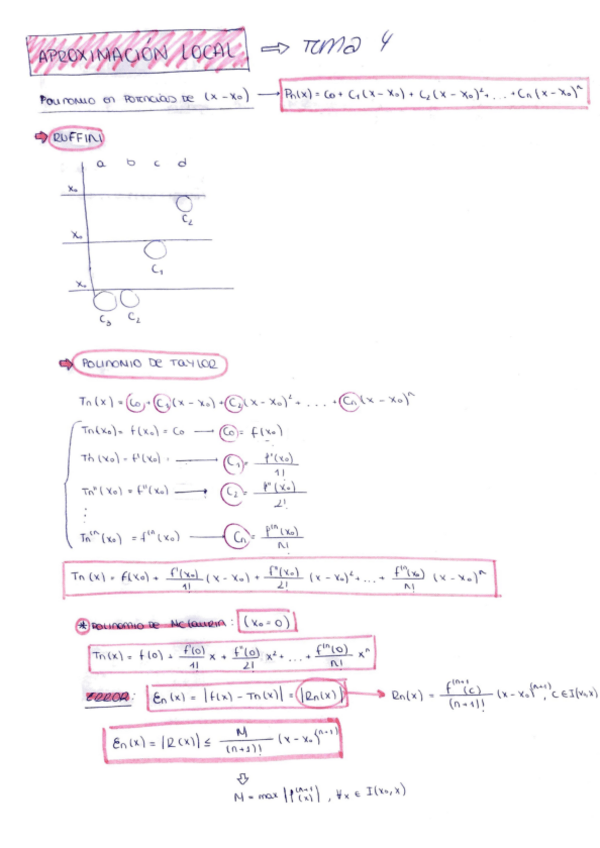 APROXIMACIÓN LOCAL ⇒ Tema 4
POLINOMIO EN POTENCIAS DE (x-x₀) → Pn(x) = C₀ + C₁(x-x₀) + C₂(x-x₀)² + ... + Cn(x-x₀)ⁿ
RUFFINI
a b c d
x₀
C₂
x₀
C₁
x₀
C₃ C₂
POLINOMIO DE TAYLOR
Tn(x) = C₀ + C₁(x-x₀) + C₂(x-x₀)² + ... + Cn(x-x₀)ⁿ
Tn(x₀) = f(x₀) = C₀ → C₀ = f(x₀)
Tn(x₀) = f'(x₀) · → C₁ = f'(x₀)/1!
Tn''(x₀) = f''(x₀) → C₂ = f''(x₀)/2!
⋮
Tn⁽ⁿ(x₀) = f⁽ⁿ(x₀) → Cn = f⁽ⁿ(x₀)/n!
Tn(x) = f(x₀) + f'(x₀)/1! (x-x₀) + f''(x₀)/2! (x-x₀)² + ... + f⁽ⁿ(x₀)/n! (x-x₀)ⁿ
* POLINOMIO DE McLAURIN: (x₀=0)
Tn(x) = f(0) + f'(0)/1! x + f''(0)/2! x² + ... + f⁽ⁿ(0)/n! xⁿ
ERROR: En(x) = |f(x) - Tn(x)| = |Rn(x)| → Rn(x) = f⁽ⁿ⁺¹(c)/(n+1)! (x-x₀)⁽ⁿ⁺¹⁾, c ∈ I(x₀,x)
En(x) = |R(x)| ≤ M/(n+1)! (x-x₀)⁽ⁿ⁺¹⁾
⇓
M = max |f⁽ⁿ⁺¹(x)|, ∀x ∈ I(x₀,x)